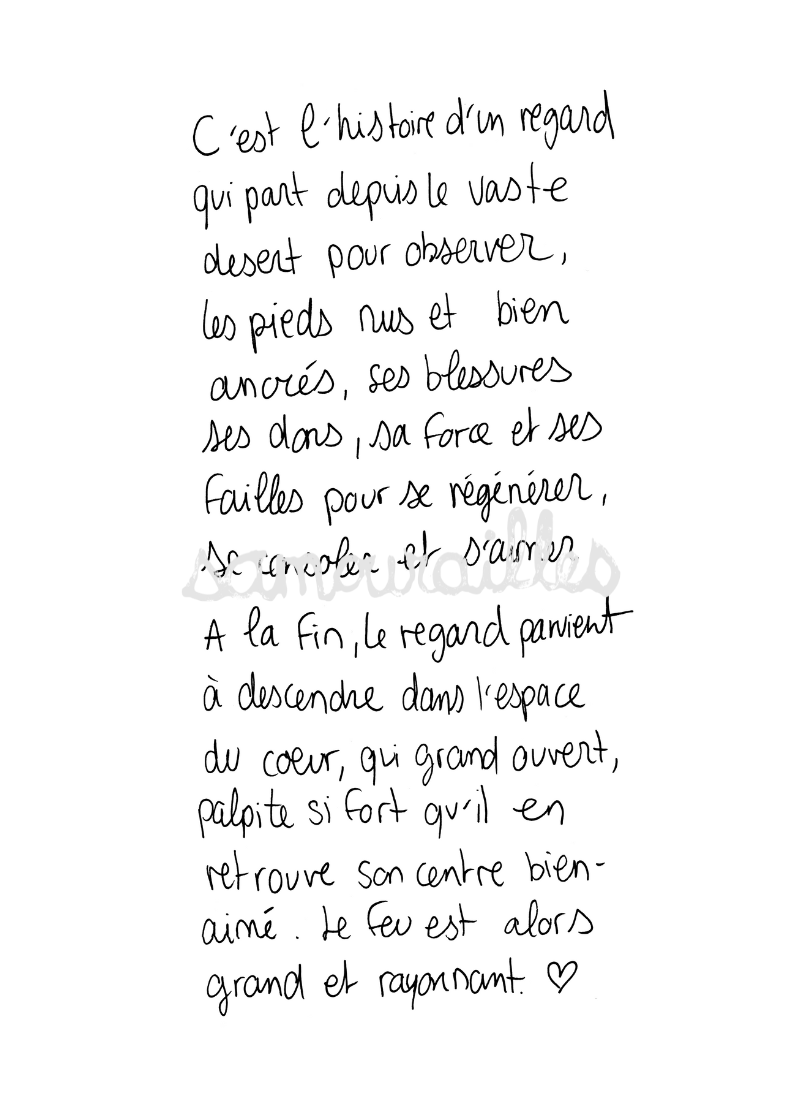 C'est l'histoire d'un regard
qui part depuis le vaste
desert pour observer,
les pieds nus et bien
ancrés, ses blessures
ses dons, sa force et ses
failles pour se régénérer,
se consoler et s'aimer
samouraailles
A la fin, le regard parvient
à descendre dans l'espace
du coeur, qui grand ouvert,
palpite si fort qu'il en
retrouve son centre bien-
aimé. Le feu est alors
grand et rayonnant. ♡